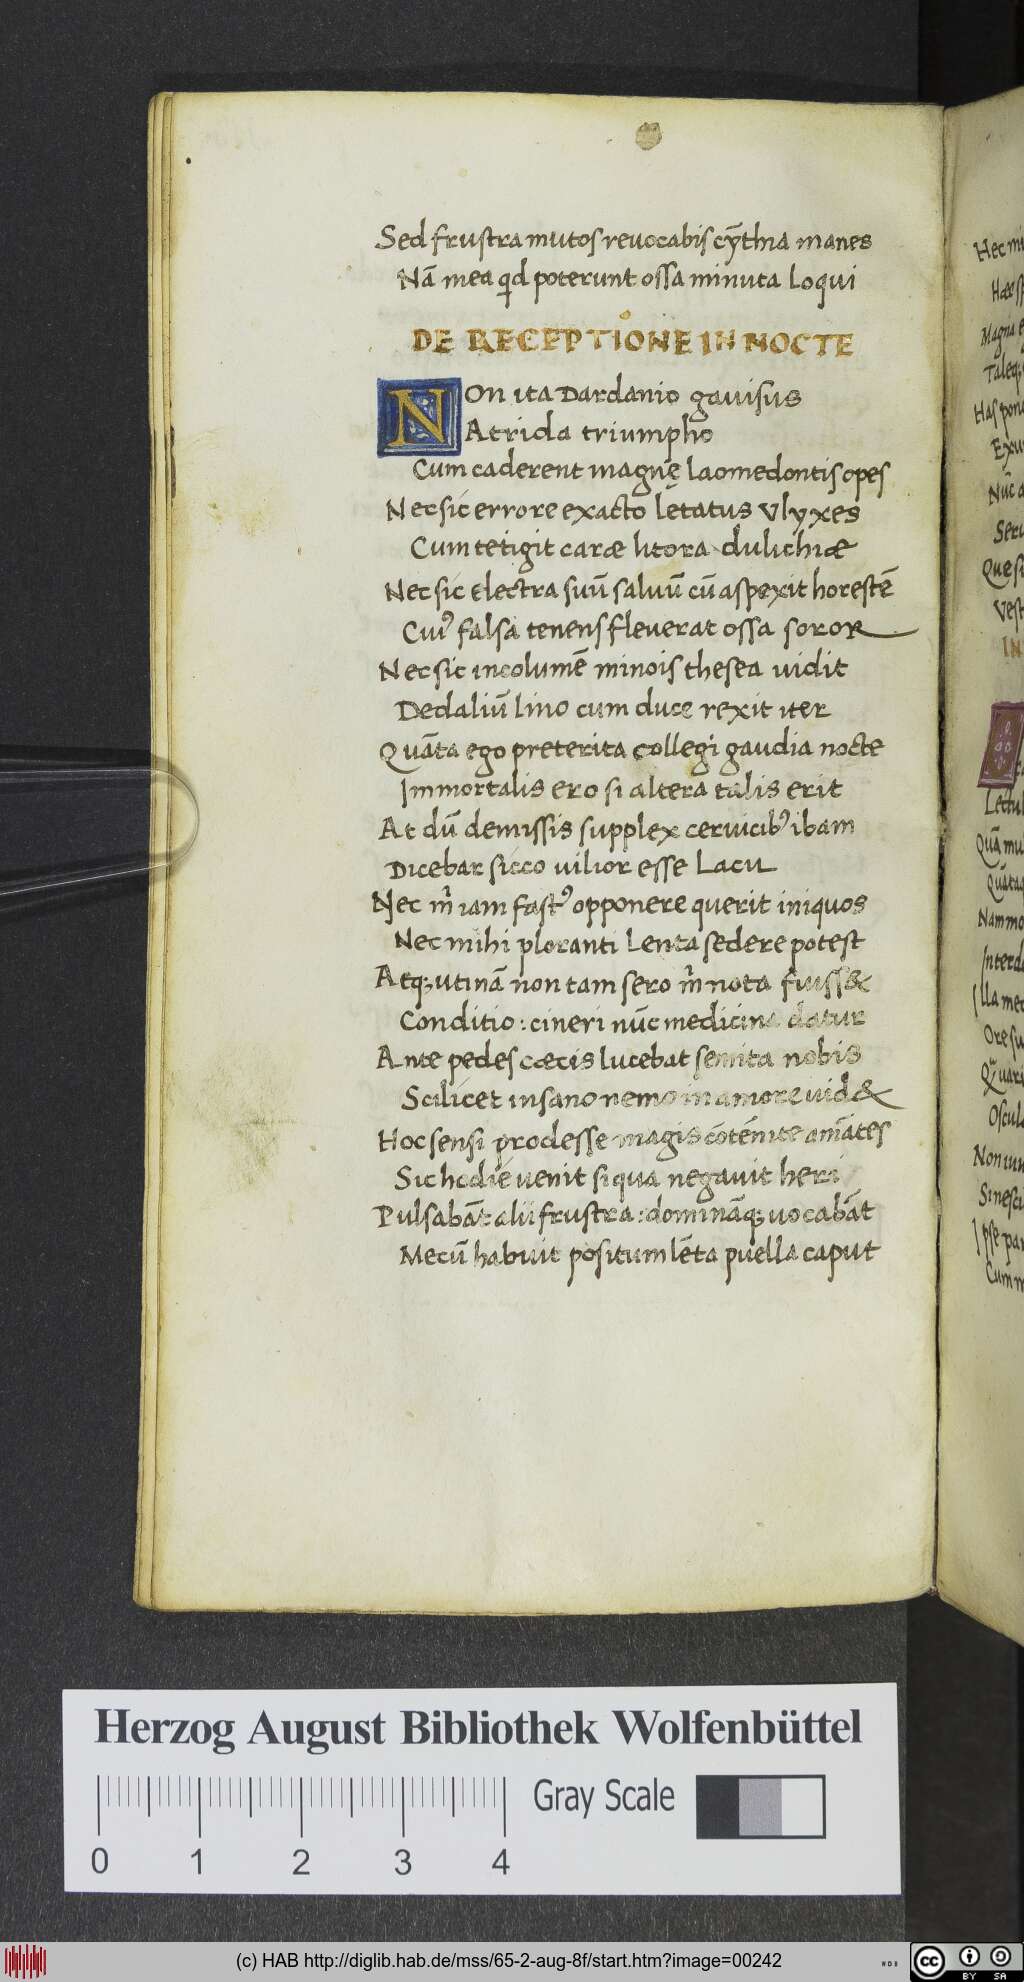 Sed frustra mutos revocabis cȳthia manes
Nā mea qd poterunt ossa minuta loqui
DE RECEPTIONE IN NOCTE
NOn ita Dardanio gavisus
Atrida triumpho
Cum caderent magnę laomedontis opes
Nec sic errore exacto lętatus Vlyxes
Cum tetigit caræ litora dulichiæ
Nec sic electra suū saluū cū aspexit horestē
Cui⁹ falsa tenens fleverat ossa soror
Nec sic incolumē minois thesea vidit
Dedaliū lino cum duce rexit iter
Quāta ego preterita collegi gaudia nocte
Immortalis ero si altera talis erit
At dū demissis supplex cervicib⁹ ibam
Dicebar sicco vilior esse lacu
Nec m̄ iam fast⁹ opponere querit iniquos
Nec mihi ploranti lenta sedere potest
Atq; utinā non tam sero m̄ nota fuiss&
Conditio: cineri nūc medicina datur
Ante pedes cæcis lucebat semita nobis
Scilicet insano nemo in amore vid&
Hoc sensi prodesse magis cōtēnite amātes
Sic hodie venit siqua negavit heri
Pulsabāt alii frustra: domināq; vocabāt
Mecū habuit positum lēta puella caput
Hec
Lectul
Quā mu
Nam mo
Interd
Illa me
Ore su
Oscul
Non iuu
Ipse pa
Cum m
IN
Herzog August Bibliothek Wolfenbüttel
Gray Scale
0 1 2 3 4
(c) HAB http://diglib.hab.de/mss/65-2-aug-8f/start.htm?image=00242
cc BY SA